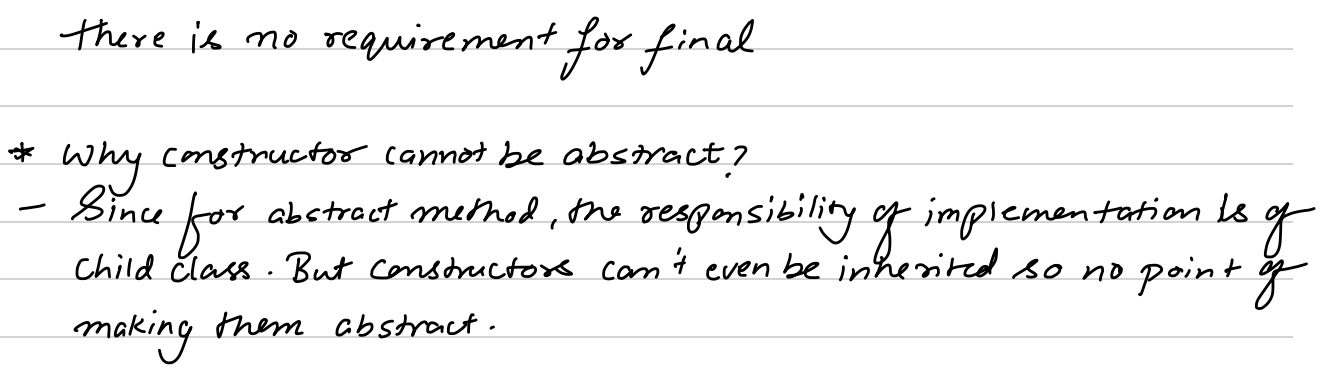 there is no requirement for final
* Why constructor cannot be abstract?
- Since for abstract method, the responsibility of implementation is of
child class. But constructors can't even be inherited so no point of
making them abstract.